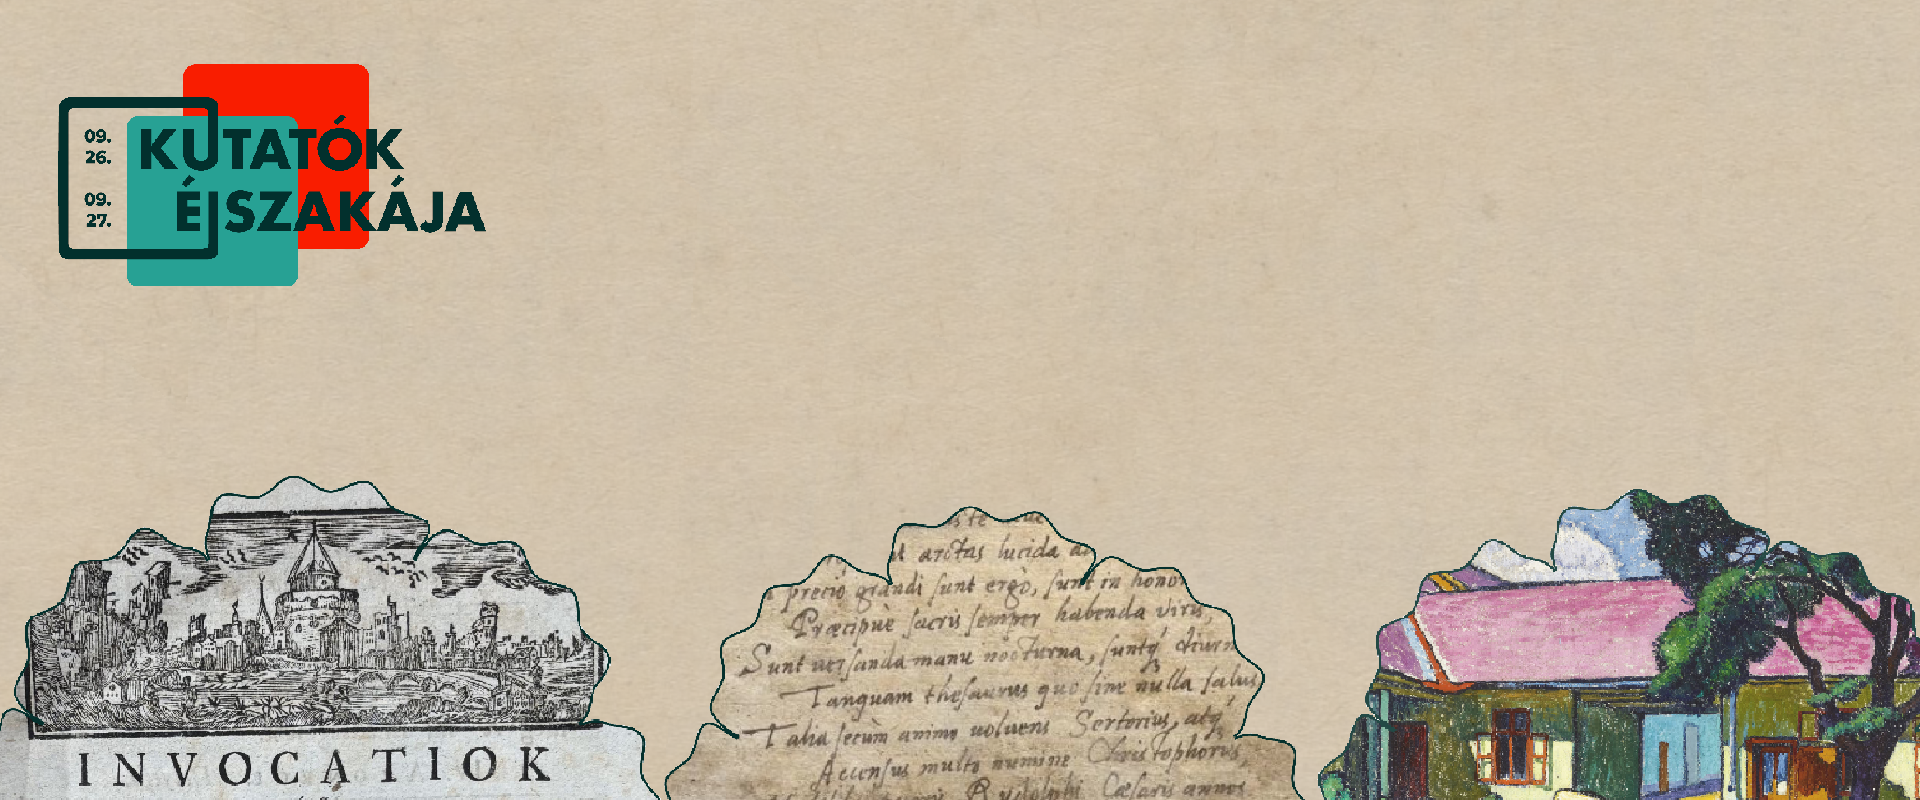 09.
26.
09.
27.
KUTATÓK
ÉJSZAKÁJA
INVOCATIOK
arctas lucida
precio grandi sunt ergò, sunt in hono
Præcipuè sacris semper habenda viris,
Sunt versanda manu nocturna, suntq́ diurn
Tanquam thesaurus quo sine nulla salus
Talia secùm animo voluens Sertorius, atq́
Accensus multo numine Christophorus,
Rudolphi Cæsaris annos